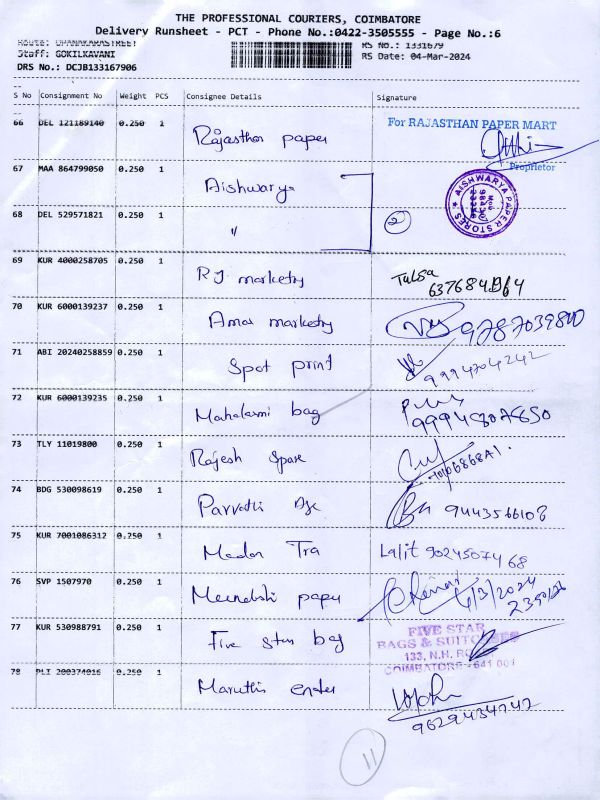 THE PROFESSIONAL COURIERS, COIMBATORE
Delivery Runsheet - PCT - Phone No.:0422-3505555 - Page No.:6
Route: DHANAKARASTREET RS No.: 1331679
Staff: GOKILKAVANI RS Date: 04-Mar-2024
DRS No.: DCJB133167906
S No Consignment No Weight PCS Consignee Details Signature
66 DEL 121189140 0.250 1 Rajasthan paper For RAJASTHAN PAPER MART
Proprietor
67 MAA 864799050 0.250 1 Aishwarya AISHWARYA PAPER STORES
68 DEL 529571821 0.250 1 " 2
69 KUR 4000258705 0.250 1 RJ marketry Tulsa
70 KUR 6000139237 0.250 1 Amar marketry 9787039800
71 ABI 20240258859 0.250 1 Spot print 9994704242
72 KUR 6000139235 0.250 1 Mahalaxmi bag
73 TLY 11019800 0.250 1 Rajesh Spare
74 BDG 530098619 0.250 1 Parvathi 9443566108
75 KUR 7001086312 0.250 1 Tra Lalit 9024507468
76 SVP 1507970 0.250 1 Meenakshi paper
77 KUR 530988791 0.250 1 Five star bag FIVE STAR
BAGS &
133, N.H. RO
COIMBATORE - 641 001
78 PLI 200374016 0.250 1 Maruthi enter
9629434242
11